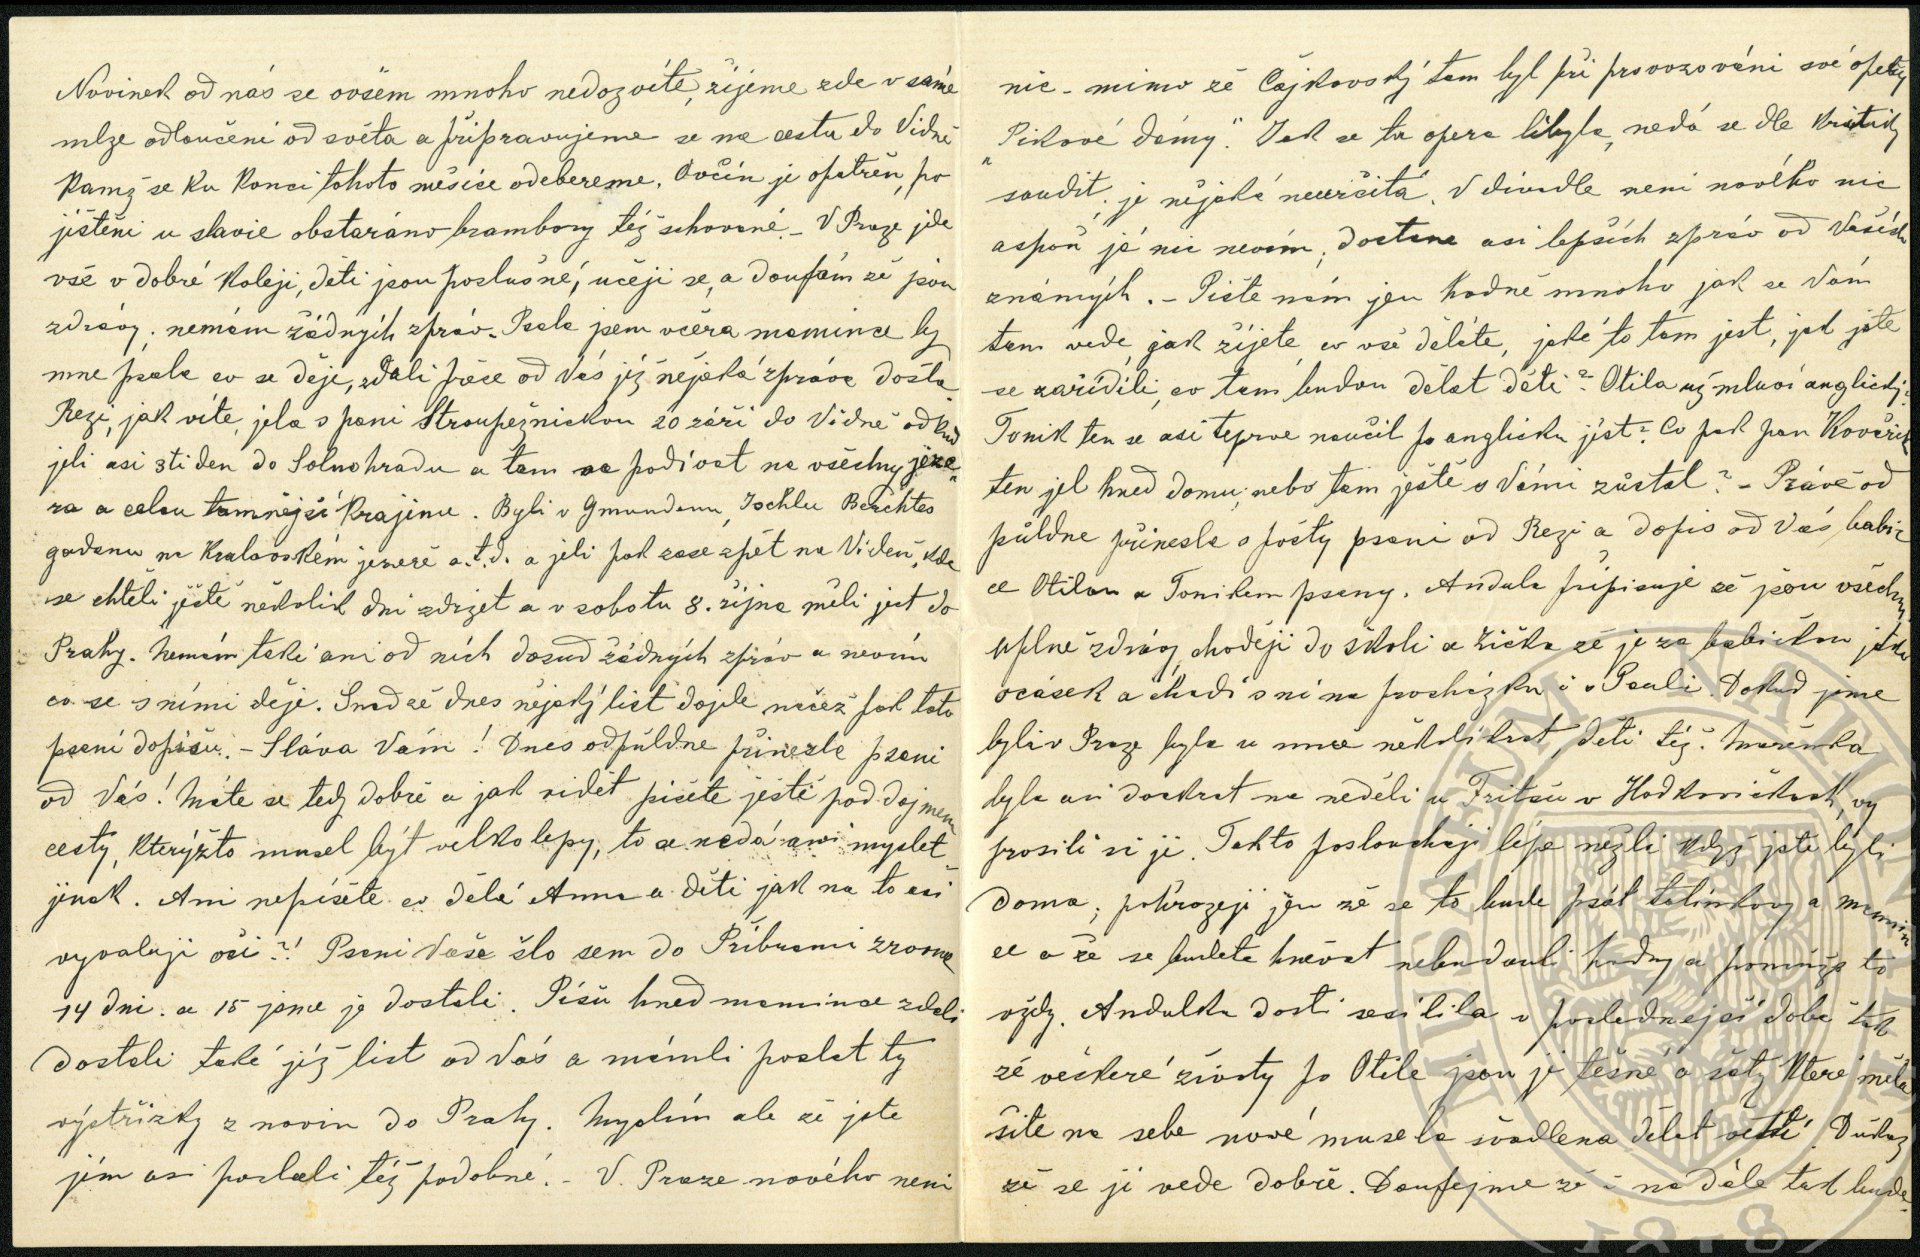 Novinek od nás se ovšem mnoho nedozvíte, žijeme zde v samé
mlze odloučeni od světa a připravujeme se na cestu do Vídně
kamž se ku konci tohoto měsíce odebereme. Ovčín je opatřen, po
jištění u slavie obstaráno brambory též schované. – V Praze jde
vše v dobré koleji, děti jsou poslušné, učeji se, a doufám že jsou
zdrávy; nemám žádných zpráv. Psala jsem včera mamince by
mne psala co se děje, zdali pose od Vás již nějaká zpráva došla
Rezi, jak víte, jela s paní Stroupežnickou 20 září do Vídně odkud
jeli asi 3ti den do Solnohradu a tam se podívat na všechny jeze„
ra a celou tamnější krajinu. Byli v Gmundenu, Ischlu Berchtes
gadenu na Kralovském jezeře a.t.d. a jeli pak zase zpět na Videň, kde
se chtěli ještě několik dní zdržet a v sobotu 8. října měli jest do
Prahy. Nemám také ani od nich dosud žádných zpráv a nevím
co se s nimi děje. Snad že dnes nějaký list dojde načež pak toto
psaní dopíšu. – Sláva Vám! Dnes odpůldne přinesla psaní
od Vás! Máte se tedy dobře a jak vidět píšete ještě pod dojmem
cesty, kterýžto musel být velkolepy, to se nedá ani myslet
jinak. Ani nepíšete co dělá Anna a děti jak na to asi
vyvalují oči?! Psaní Vaše šlo sem do Příbrami zrovna
14 dní. a 15 jsme je dostali. Píšu hned mamince zdali
dostali také již list od Vás a mámli poslat ty
výstřižky z novin do Prahy. Myslím ale že jste
jim asi poslali též podobné. – V. Praze nového není
nic – mimo že Čajkovský tam byl při provozování své opery
„Pikové dámy". Jak se ta opera líbyla, nedá se dle kritiky
soudit; je nějaká neurčitá. V divadle není nového nic
aspoň já nic nevím; dostane asi lepších zpráv od Vašich
známých. – Pište nám jen hodně mnoho jak se Vám
tam vede, jak žijete, co vše děláte, jaké to tam jest, jak jste
se zařídili, co tam budou dělat děti? Otila už mluví anglicky?
Tonik ten se asi teprve naučil po anglicku jíst? Co pak pan Kovařík
ten jel hned domu, nebo tam ještě s Vámi zůstal? – Právě od
půldne přinesla s pošty psaní od Rezi a dopis od Vás babič
ce Otilou a Tonikem psany. Andula připisuje že jsou všechny
uplně zdrávy, chodějí do školi a Zička že je za babičkou jako
ocásek a chodí s ní na procházku i v Pauli. Dokud jsme
byli v Praze byla u mne několikrat, děti též. Mařenka
byla asi dvakrat na neděli u Fritšu v Hodkovičkach, vy
prosili si jí. Takto poslouchají lépe nežli když jste byli
doma; pohrozejí jen že se to bude psát tatínkovy a mamin
ce a že se budete hněvat nebudouli hodny a pomůže to
vždy. Andulka dosti sesílila v poslednější době tak
že veškeré životy po Otile jsou jí těsné a šaty které měla
šité na sebe nové musela švadlena dělat větší. Důkaz
že se jí vede dobře. Doufejme že i na dále tak bude.
MUSAEUM NATIONALE
1818